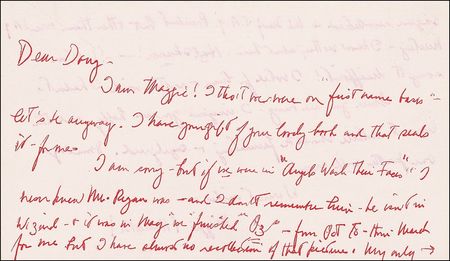 Dear Doug -
I am Maggie! I tho't we were on "first name basis" -
let's be anyway. I have your gift of your lovely book and that seals
it - for me.
I am sorry - but if we were in "Angels Wash Their Faces" - I
never knew Mr. Regan was - and I don't remember him - he isn't in
Wizard - it was in May we finished "Oz" - from Oct to - thru March
for me but I have almost no recollection of that picture. My only →